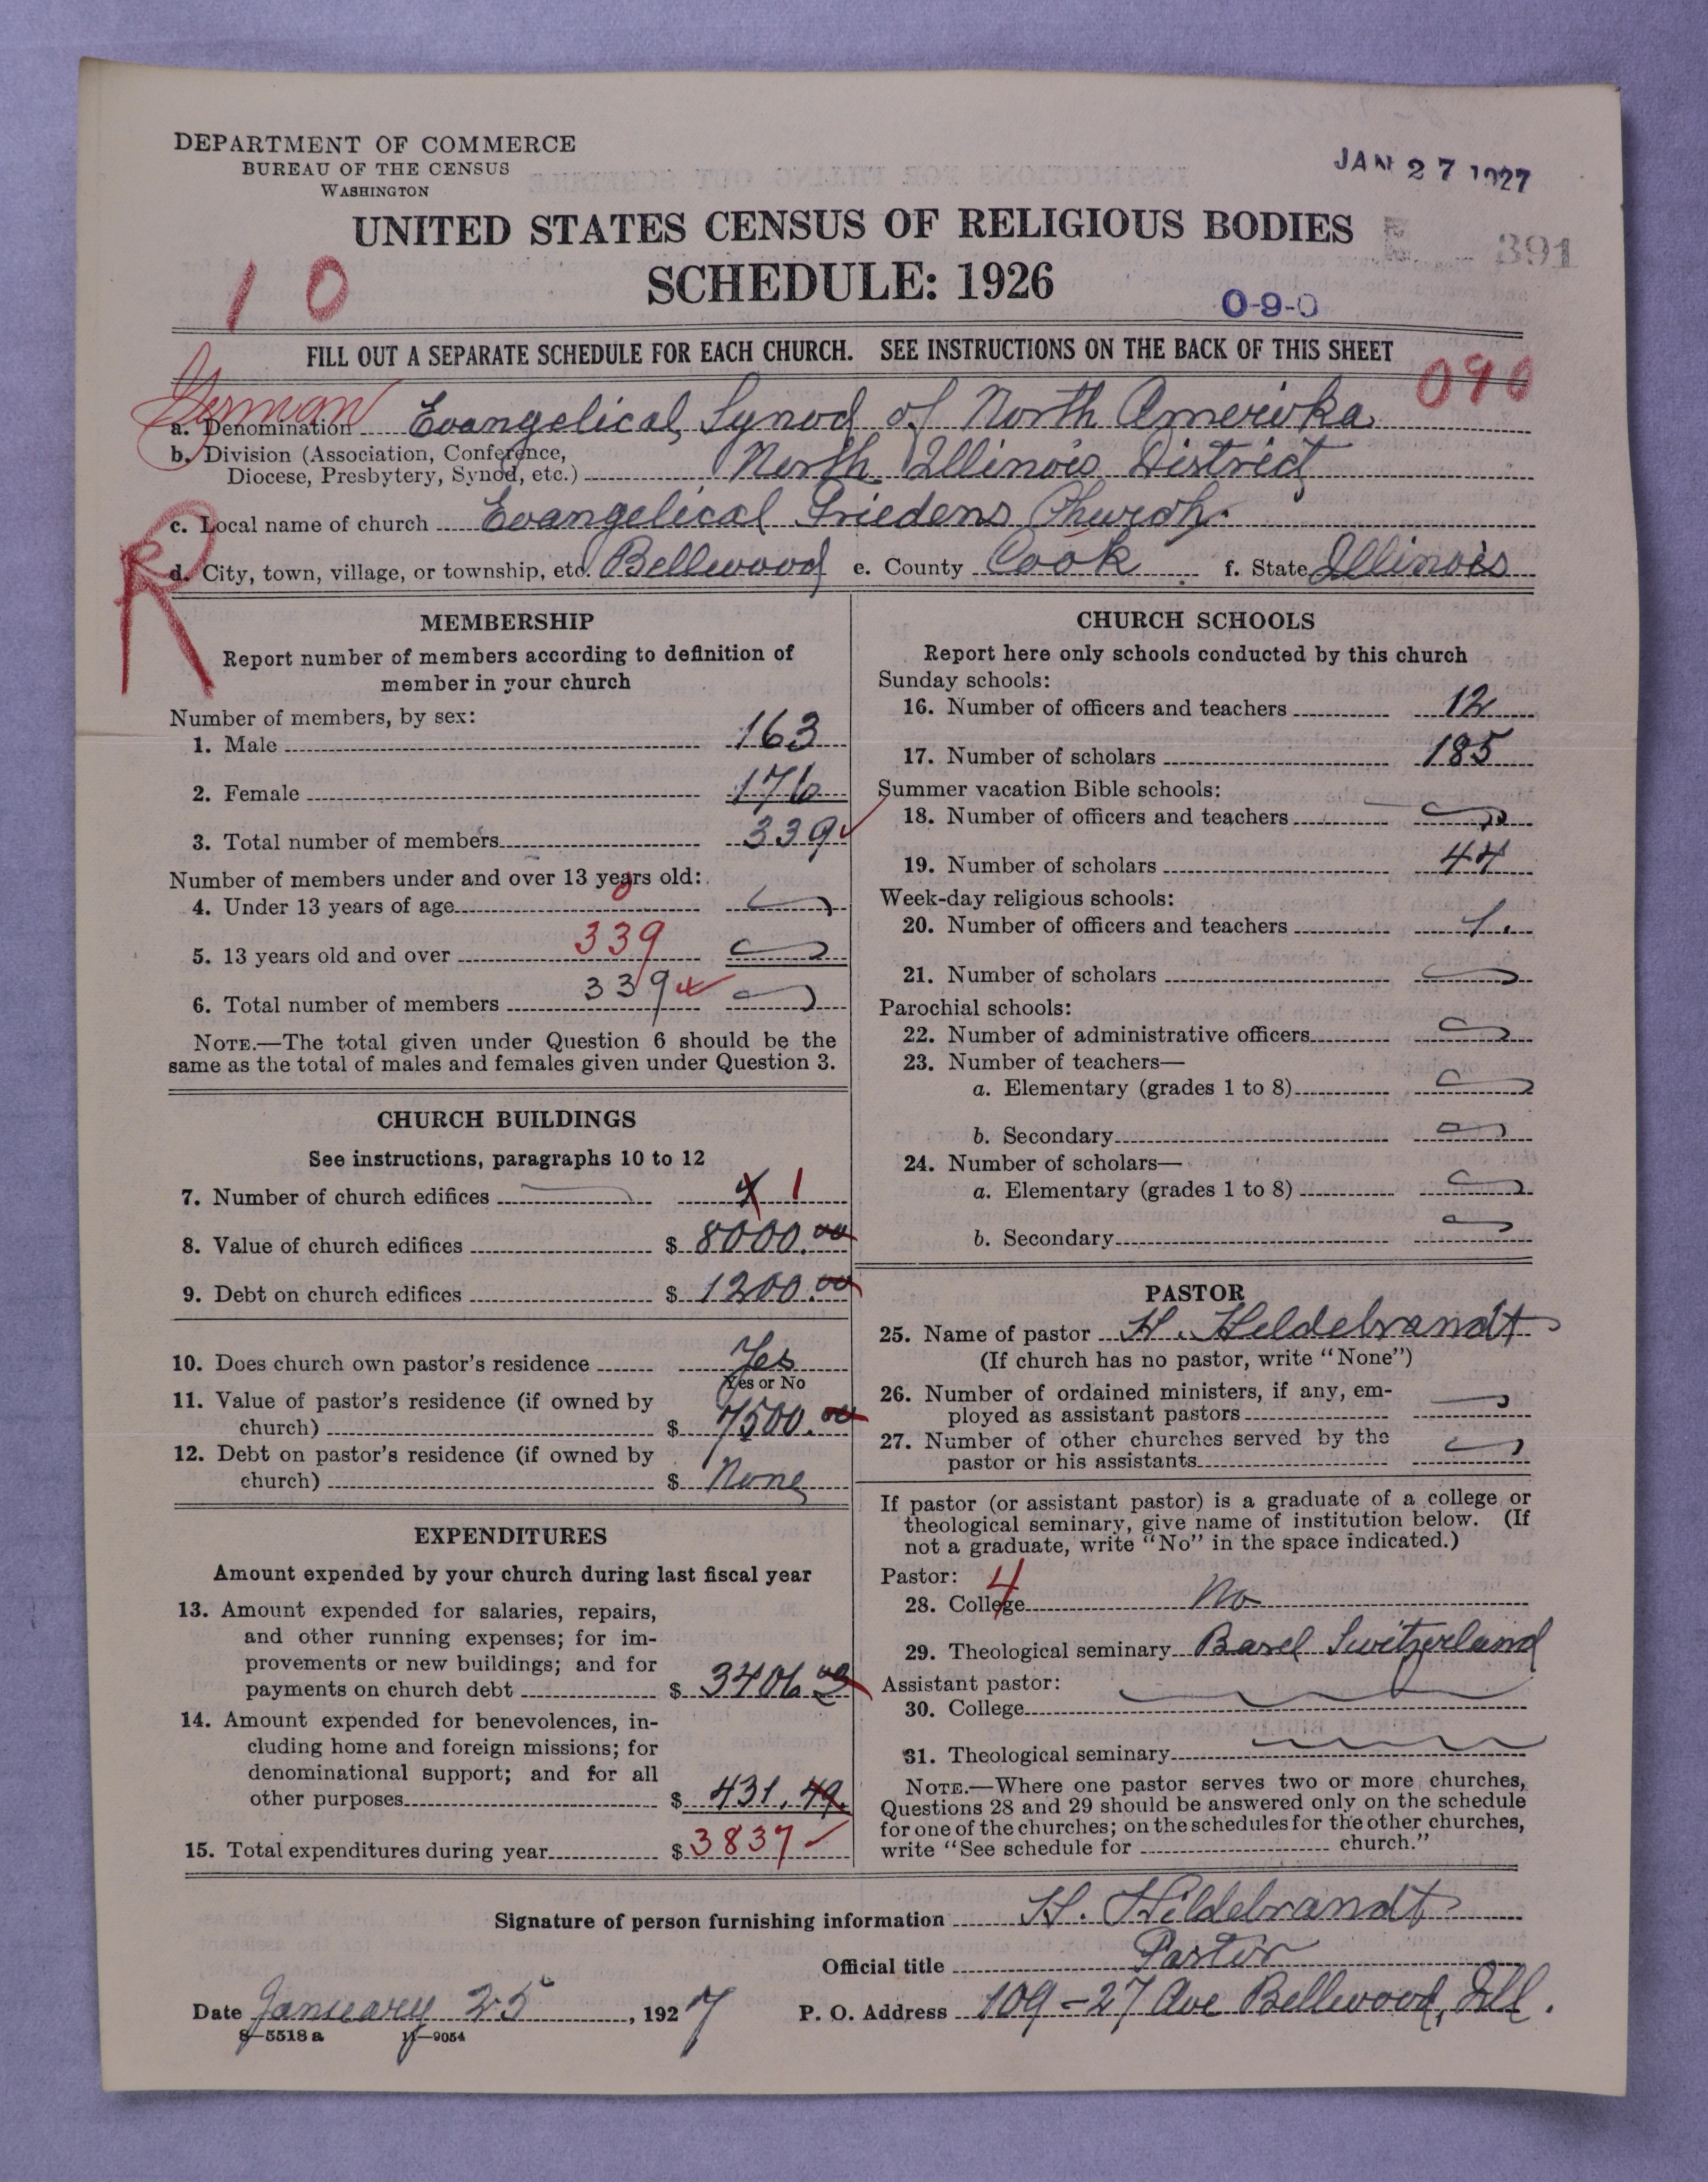 DEPARTMENT OF COMMERCE
BUREAU OF THE CENSUS
WASHINGTON
JAN 27 1927
UNITED STATES CENSUS OF RELIGIOUS BODIES
391
SCHEDULE: 1926
10
0-9-0
FILL OUT A SEPARATE SCHEDULE FOR EACH CHURCH. SEE INSTRUCTIONS ON THE BACK OF THIS SHEET
090
German
a. Denomination Evangelical Synod of North Amerika
b. Division (Association, Conference,
Diocese, Presbytery, Synod, etc.) North Illinois District
c. Local name of church Evangelical Friedens Church.
R
d. City, town, village, or township, etc. Bellwood e. County Cook f. State Illinois
MEMBERSHIP
Report number of members according to definition of
member in your church
Number of members, by sex:
1. Male 163
2. Female 176
3. Total number of members 339
Number of members under and over 13 years old:
4. Under 13 years of age
5. 13 years old and over 339
6. Total number of members 339
NOTE.—The total given under Question 6 should be the
same as the total of males and females given under Question 3.
CHURCH BUILDINGS
See instructions, paragraphs 10 to 12
7. Number of church edifices 1
8. Value of church edifices $ 8000.00
9. Debt on church edifices $ 1200.00
10. Does church own pastor's residence Yes
Yes or No
11. Value of pastor's residence (if owned by
church) $ 7500.00
12. Debt on pastor's residence (if owned by
church) $ None
EXPENDITURES
Amount expended by your church during last fiscal year
13. Amount expended for salaries, repairs,
and other running expenses; for im-
provements or new buildings; and for
payments on church debt $ 3406
14. Amount expended for benevolences, in-
cluding home and foreign missions; for
denominational support; and for all
other purposes $ 431.49
15. Total expenditures during year $ 3837
CHURCH SCHOOLS
Report here only schools conducted by this church
Sunday schools:
16. Number of officers and teachers 12
17. Number of scholars 185
Summer vacation Bible schools:
18. Number of officers and teachers
19. Number of scholars 44
Week-day religious schools:
20. Number of officers and teachers 1.
21. Number of scholars
Parochial schools:
22. Number of administrative officers
23. Number of teachers—
a. Elementary (grades 1 to 8)
b. Secondary
24. Number of scholars—
a. Elementary (grades 1 to 8)
b. Secondary
PASTOR
25. Name of pastor H. Hildebrandt
(If church has no pastor, write "None")
26. Number of ordained ministers, if any, em-
ployed as assistant pastors
27. Number of other churches served by the
pastor or his assistants
If pastor (or assistant pastor) is a graduate of a college or
theological seminary, give name of institution below. (If
not a graduate, write "No" in the space indicated.)
Pastor: 4
28. College No
29. Theological seminary Basel Switzerland
Assistant pastor:
30. College
31. Theological seminary
NOTE.—Where one pastor serves two or more churches,
Questions 28 and 29 should be answered only on the schedule
for one of the churches; on the schedules for the other churches,
write "See schedule for church."
Signature of person furnishing information H. Hildebrandt
Official title Pastor
Date January 25, 1927 P. O. Address 109-27 Ave Bellwood, Ill.
8—5518a 11—9054